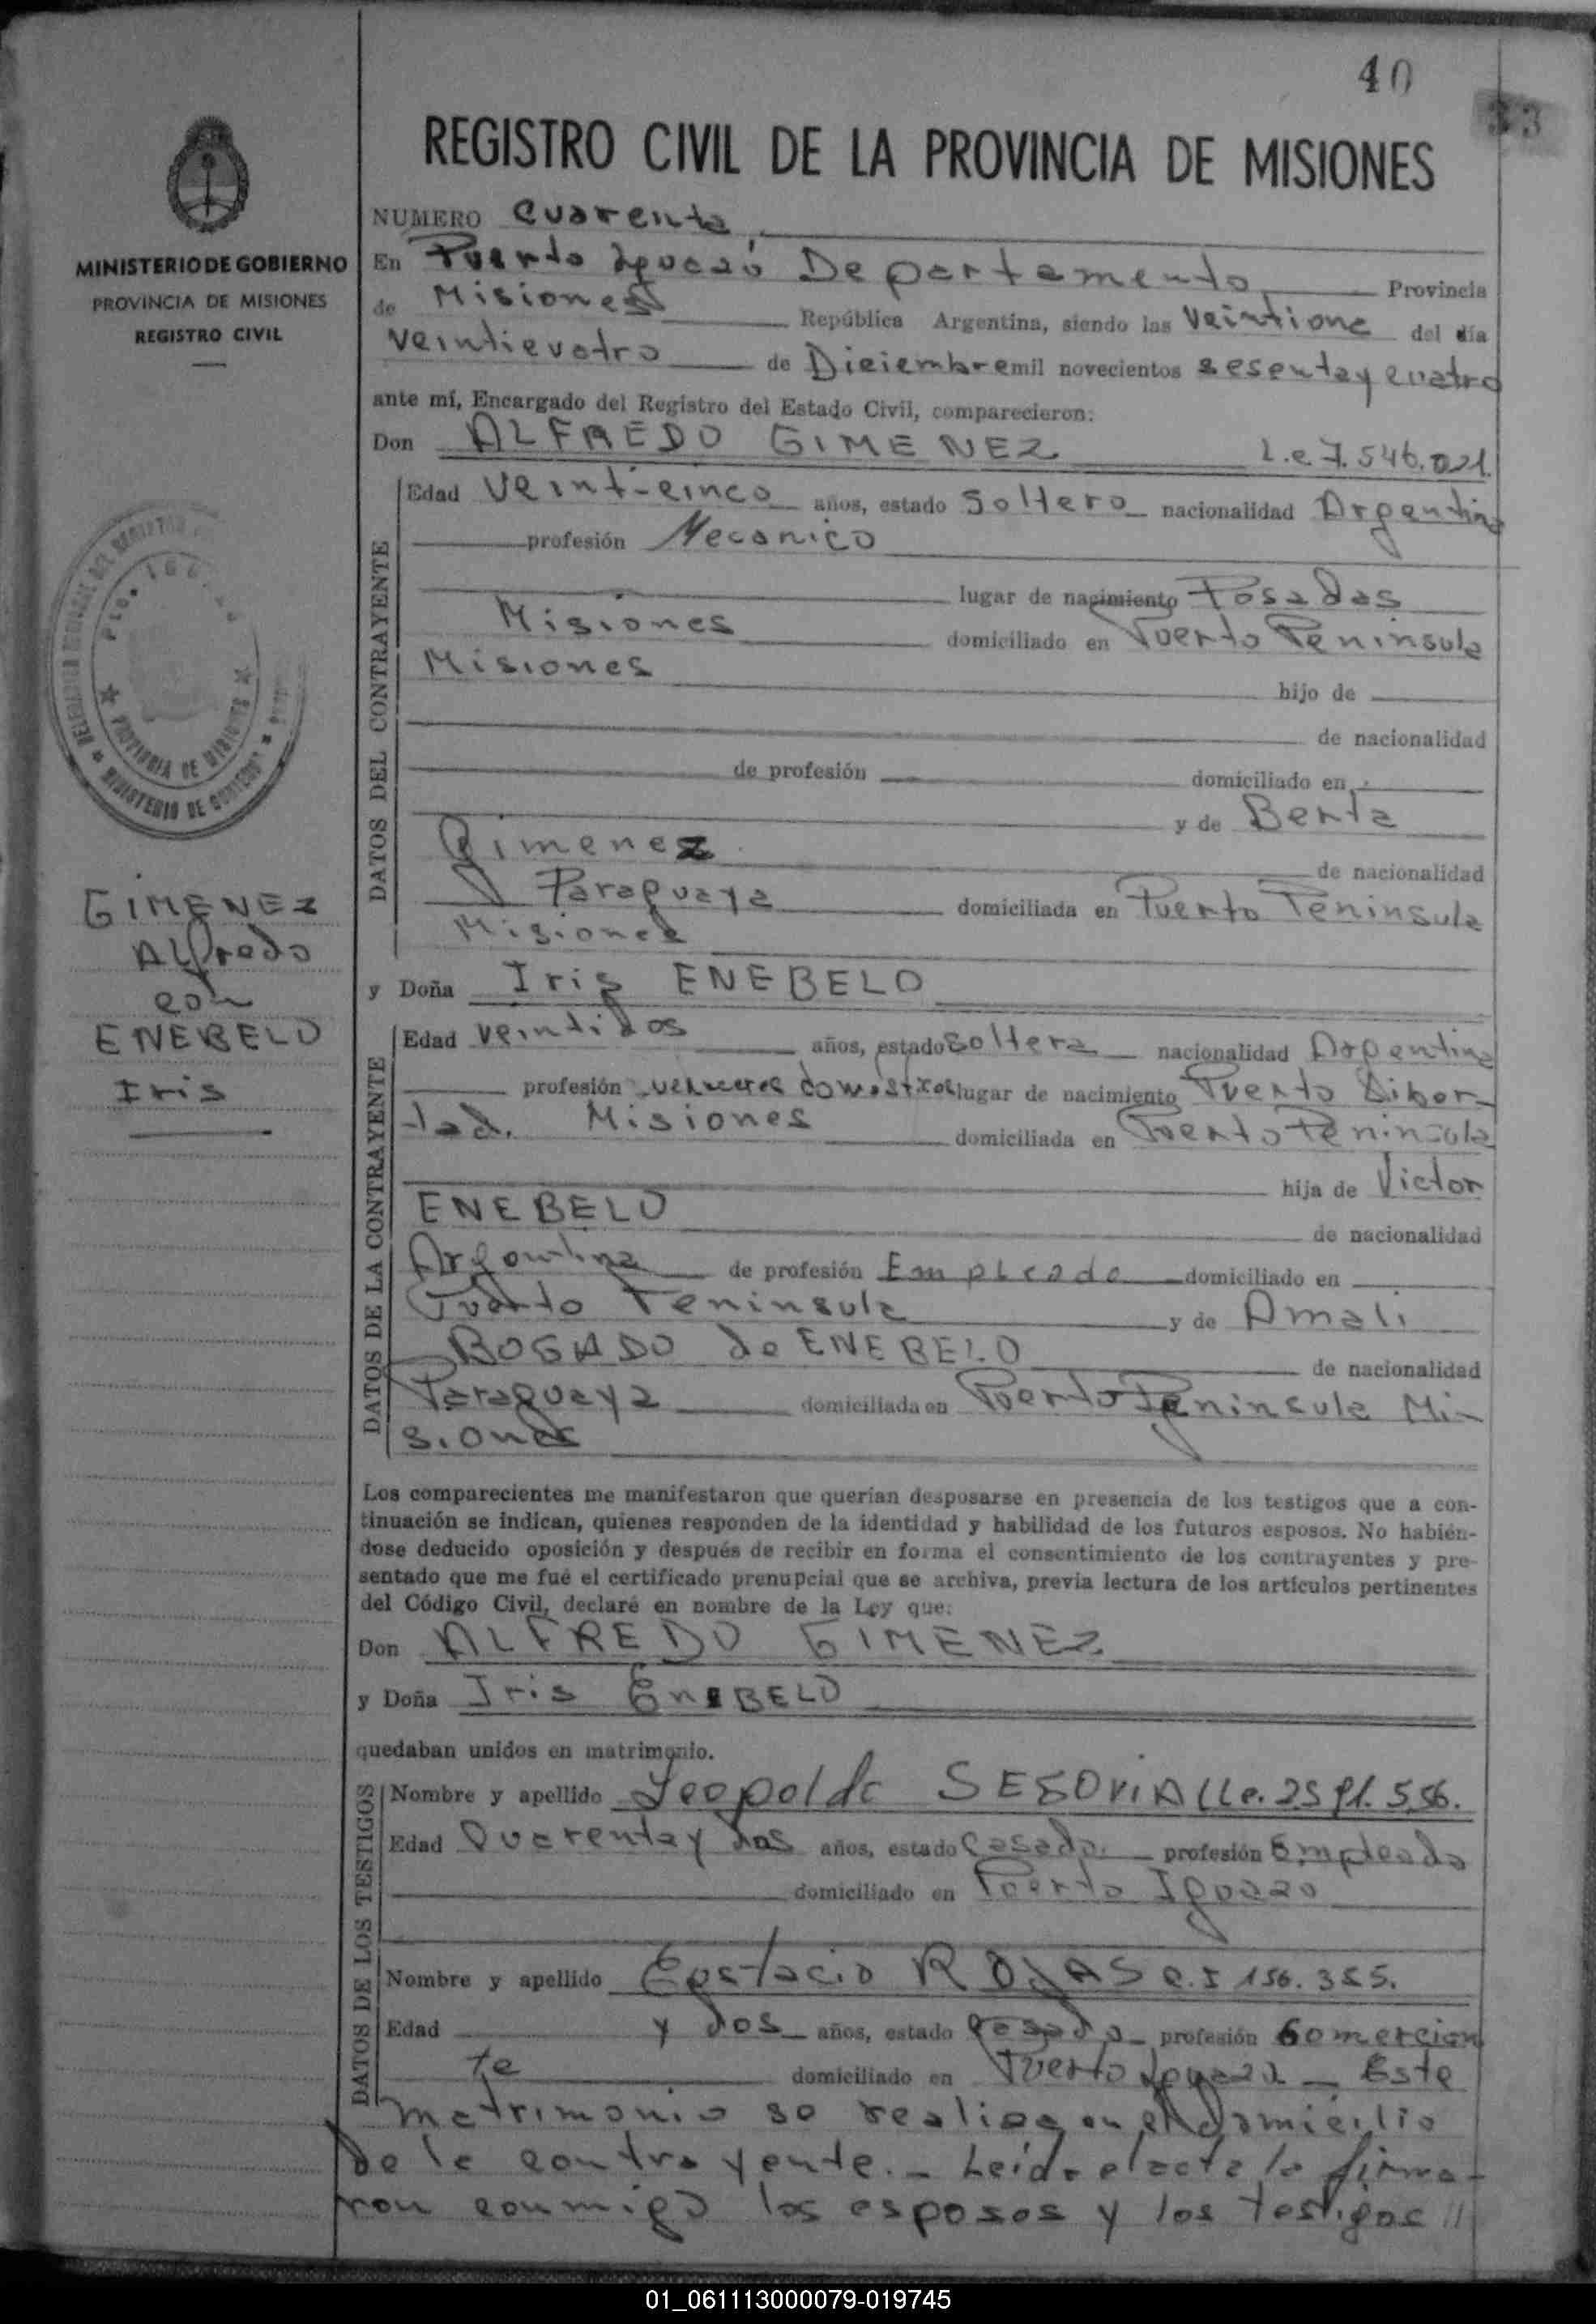 40
33
REGISTRO CIVIL DE LA PROVINCIA DE MISIONES
MINISTERIO DE GOBIERNO
PROVINCIA DE MISIONES
REGISTRO CIVIL
NUMERO Cuarenta
En Puerto Iguazú Departamento Provincia
de Misiones República Argentina, siendo las Veintiuna del día
veinticuatro de Diciembre mil novecientos sesenta y cuatro
ante mí, Encargado del Registro del Estado Civil, comparecieron:
Don ALFREDO GIMENEZ L.e 7.546.021.
DATOS DEL CONTRAYENTE
Edad Veinti-cinco años, estado Soltero nacionalidad Argentina
profesión Mecanico
lugar de nacimiento Posadas
Misiones domiciliado en Puerto Peninsula
Misiones hijo de
de nacionalidad
de profesión domiciliado en
y de Berta
Gimenez de nacionalidad
Paraguaya domiciliada en Puerto Peninsula
Misiones
PROVINCIA DE MISIONES
MINISTERIO DE GOBIERNO
GIMENEZ
Alfredo
con
ENEBELO
Iris
y Doña Iris ENEBELO
DATOS DE LA CONTRAYENTE
Edad veintidos años, estado Soltera nacionalidad Argentina
profesión domesticos lugar de nacimiento Puerto Liber-
tad. Misiones domiciliada en Puerto Peninsula
hija de Victor
ENEBELO de nacionalidad
Argentina de profesión Empleado domiciliado en
Puerto Peninsula y de Amali
BOGADO de ENEBELO de nacionalidad
Paraguaya domiciliada en Puerto Peninsula Mi-
siones
Los comparecientes me manifestaron que querían desposarse en presencia de los testigos que a con-
tinuación se indican, quienes responden de la identidad y habilidad de los futuros esposos. No habién-
dose deducido oposición y después de recibir en forma el consentimiento de los contrayentes y pre-
sentado que me fué el certificado prenupcial que se archiva, previa lectura de los artículos pertinentes
del Código Civil, declaré en nombre de la Ley que:
Don ALFREDO GIMENEZ
y Doña Iris EnEBELO
quedaban unidos en matrimonio.
DATOS DE LOS TESTIGOS
Nombre y apellido Leopoldo SEGOVIA
Edad Cuarenta y dos años, estado Casado profesión Empleado
domiciliado en Puerto Iguazo
Nombre y apellido Eustacio ROJAS C.I 156.355.
Edad y dos años, estado Casado profesión Comercian
te domiciliado en Puerto Iguazú - Este
matrimonio se realiza en el domicilio
de la contrayente. - Leida el acta la firma-
ron conmigo los esposos y los testigos //
01_061113000079-019745